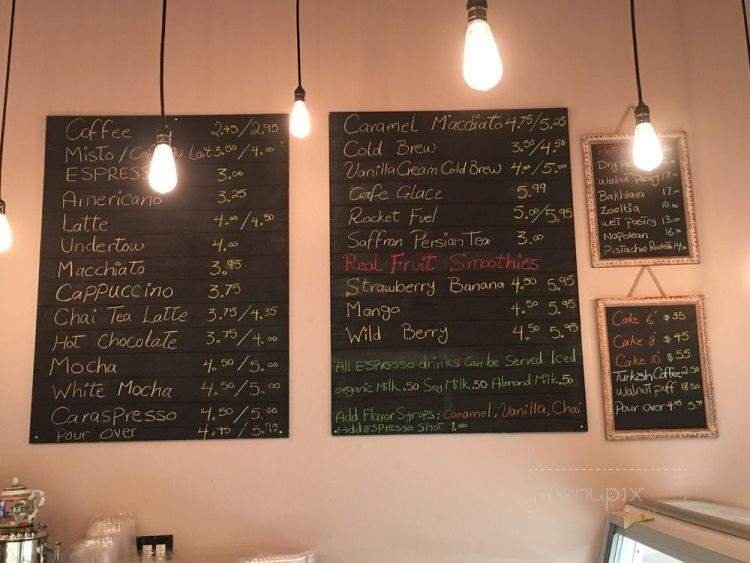 Coffee 2.45/2.95
Misto / Lait 3.50/4.00
ESPRESS 3.00
Americano 3.25
Latte 4.00/4.50
Undertow 4.00
Macchiato 3.95
Cappuccino 3.75
Chai Tea Latte 3.75/4.35
Hot Chocolate 3.75/4.00
Mocha 4.50/5.00
White Mocha 4.50/5.00
Caraspresso 4.50/5.00
Pour Over 4.75/5.75
Caramel Macchiato 4.75/5.25
Cold Brew 3.50/4.50
Vanilla Cream Cold Brew 4.00/5.00
Cafe Glace 5.99
Rocket Fuel 5.00/5.95
Saffron Persian Tea 3.00
Real Fruit Smoothies
Strawberry Banana 4.50 5.95
Mango 4.50 5.95
Wild Berry 4.50 5.95
All Espresso drinks Can be Served Iced
organic Milk .50 Soy Milk .50 Almond Milk .50
Add Flavor Syrups: Caramel, Vanilla, Chai
Add Espresso Shot 1.00
Dry
Walnut 17.00
Bakhlava 17.00
Zoolbia 10.00
Wet Pastry 13.00
Napolean 16.00
Pistachio 14.00
Cake 6" $35
Cake 8" $45
Cake 10" $55
Turkish Coffee 2.50
Walnut Puff 18.50
Pour Over 4.95
menupix